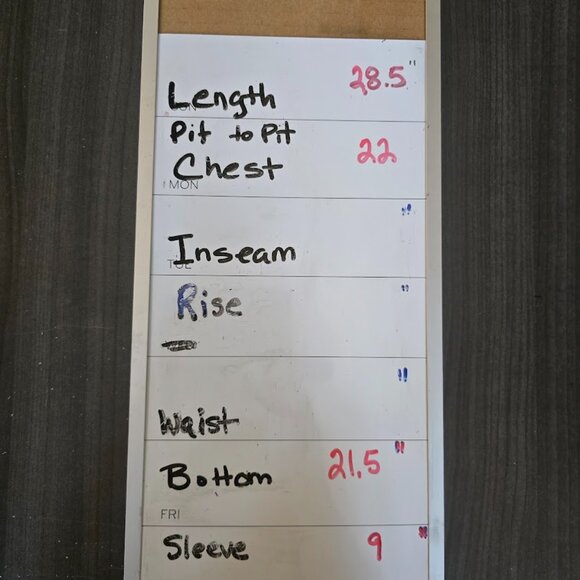 Length 28.5"
Pit to Pit
Chest 22
MON
"
Inseam
Rise "
"
Waist
Bottom 21.5"
FRI
Sleeve 9"